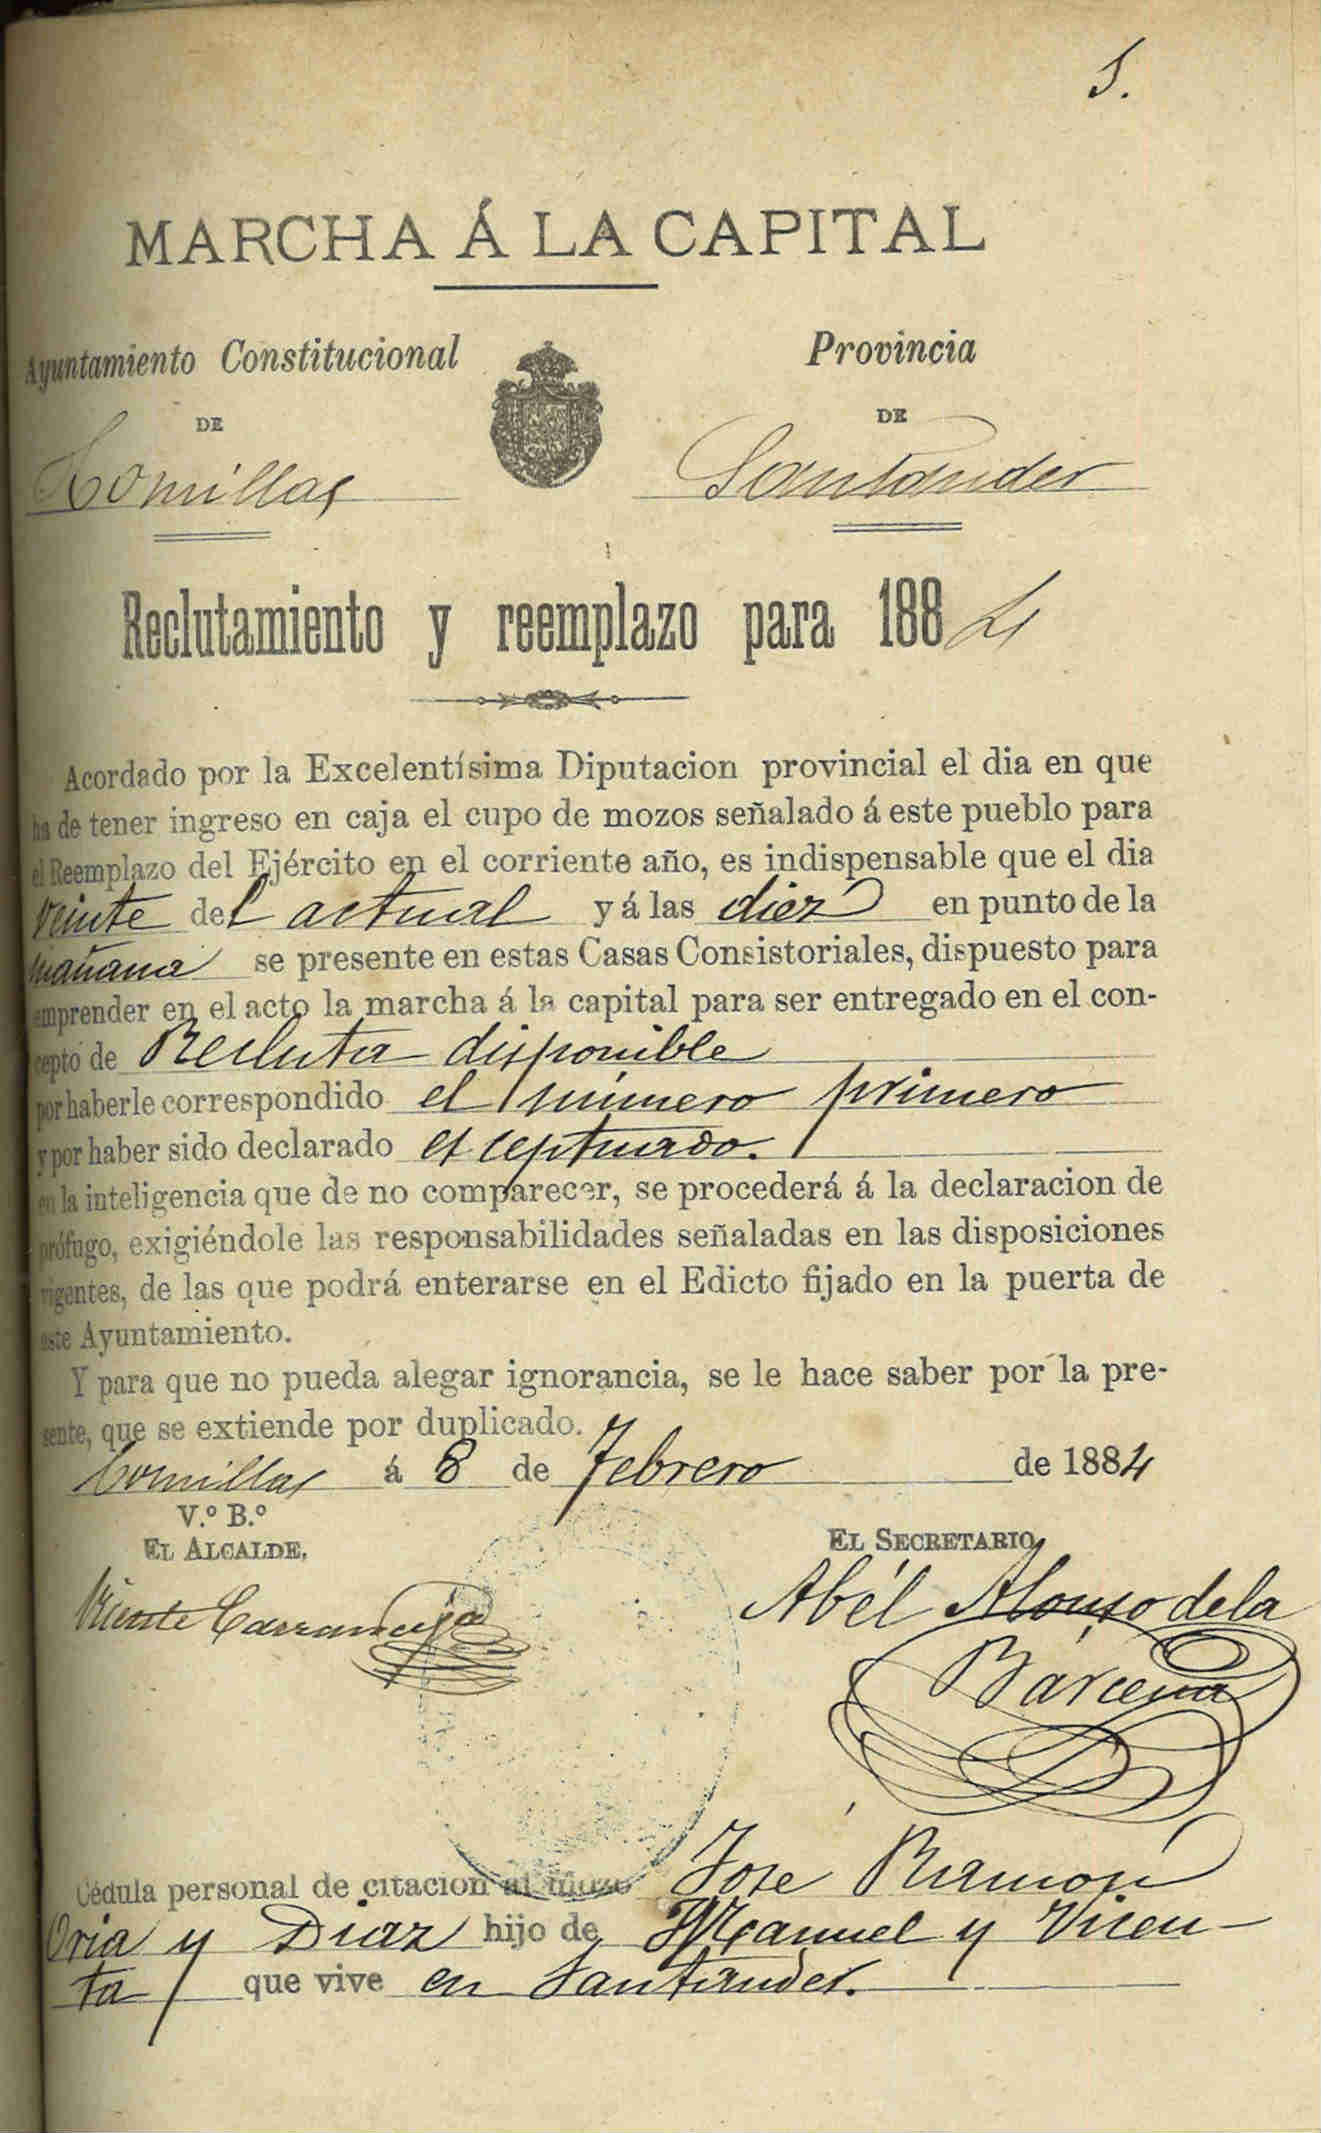 5.
MARCHA Á LA CAPITAL
Ayuntamiento Constitucional
DE
Comillas
Provincia
DE
Santander
Reclutamiento y reemplazo para 1884
Acordado por la Excelentísima Diputacion provincial el dia en que
ha de tener ingreso en caja el cupo de mozos señalado á este pueblo para
el Reemplazo del Ejército en el corriente año, es indispensable que el dia
veinte del actual y á las diez en punto de la
mañana se presente en estas Casas Consistoriales, dispuesto para
emprender en el acto la marcha á la capital para ser entregado en el con-
cepto de Recluta disponible
por haberle correspondido el número primero
y por haber sido declarado esceptuado.
en la inteligencia que de no comparecer, se procederá á la declaracion de
prófugo, exigiéndole las responsabilidades señaladas en las disposiciones
vigentes, de las que podrá enterarse en el Edicto fijado en la puerta de
este Ayuntamiento.
Y para que no pueda alegar ignorancia, se le hace saber por la pre-
sente, que se extiende por duplicado.
Comillas á 8 de Febrero de 1884
V.º B.º
EL ALCALDE,
Vicente Carranceja
EL SECRETARIO,
Abél Alonso de la
Bárcena
Cédula personal de citacion al mozo José Ramón
Oria y Diaz hijo de Manuel y Vicen-
ta que vive en Santander.